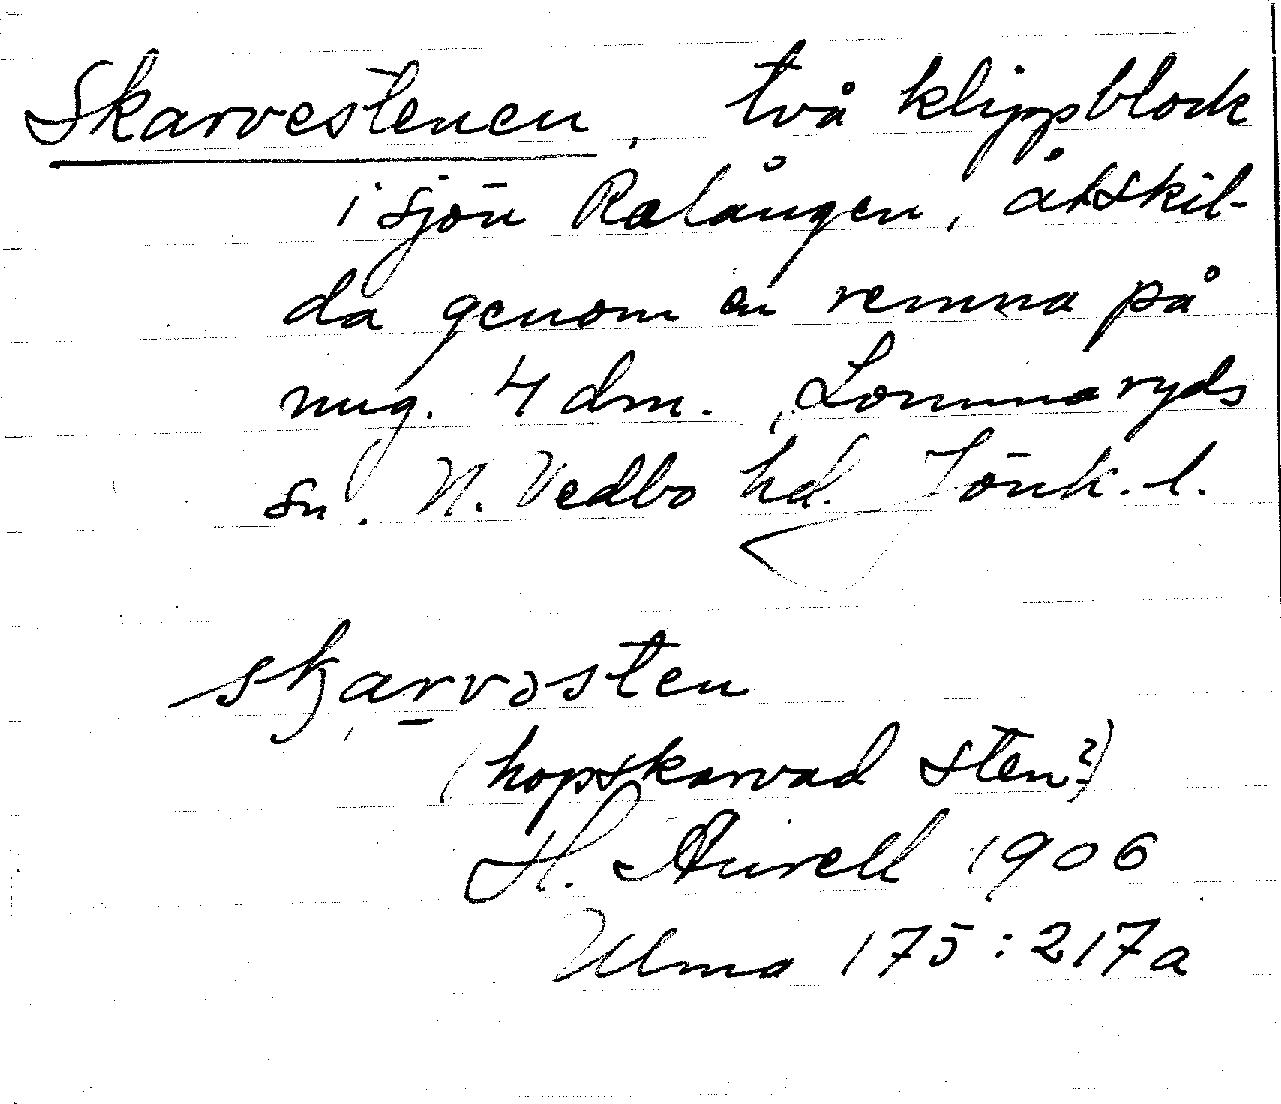 Skarvestenen, två klippblock
i sjön Ralången, åtskil-
da genom en remna på
nug. 4 dm. Lommaryds
sn. N. Vedbo hd. Jönk. l.
skarvəsten
(hopskarvad sten?)
H. Aurell 1906
Ulma 175:217a